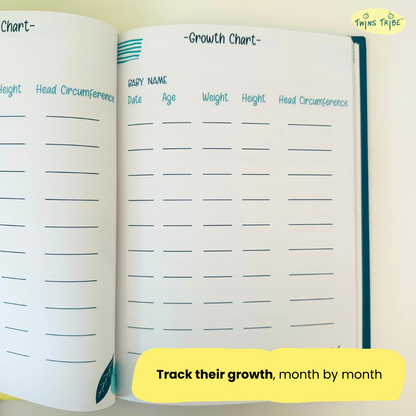 Chart-
Height Head Circumference
-Growth Chart-
BABY NAME
Date Age Weight Height Head Circumference
TWINS TRIBE
Track their growth, month by month